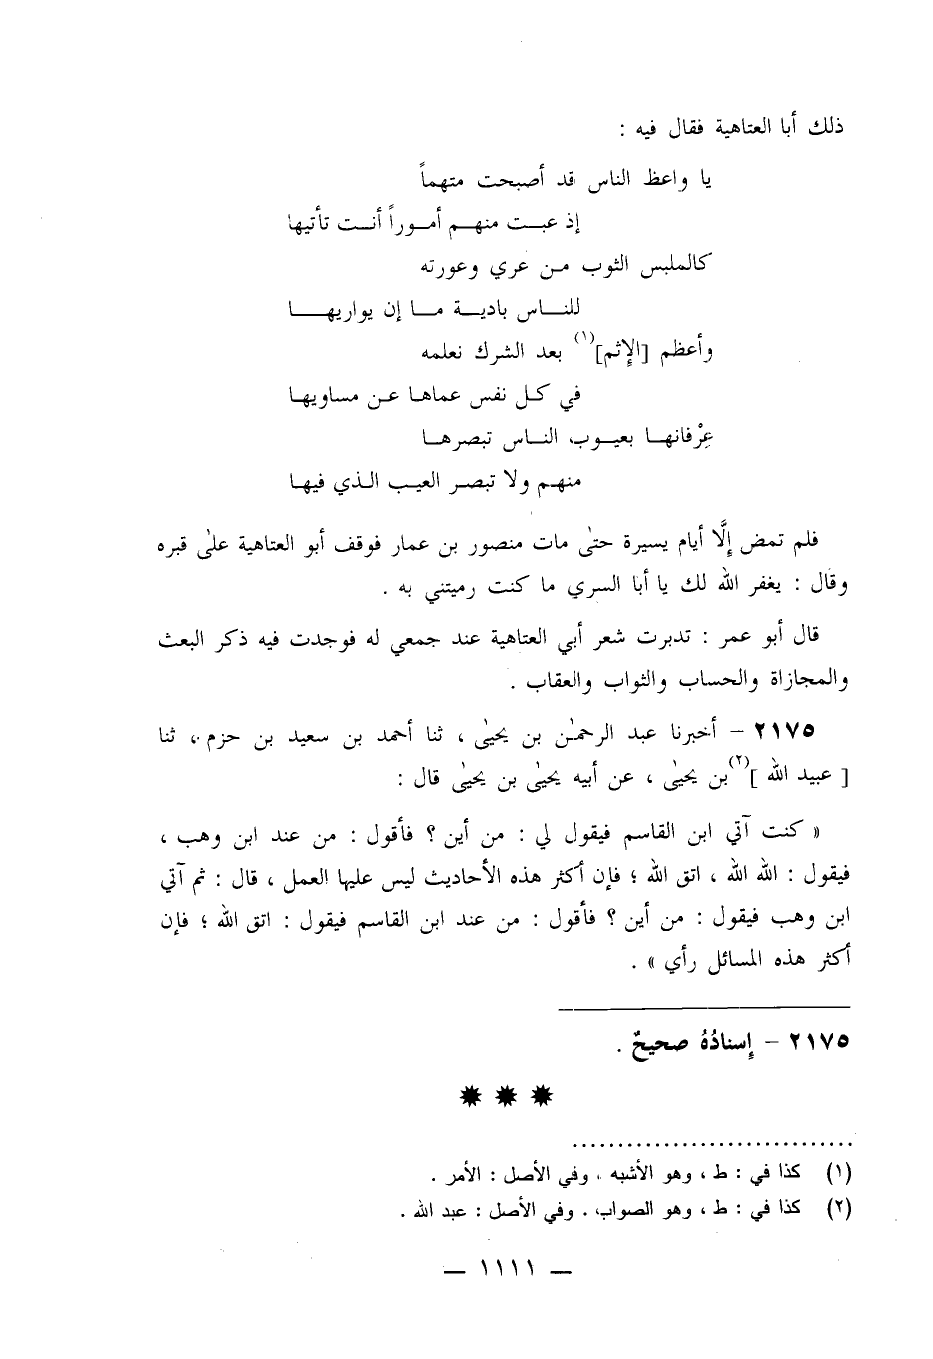 ذلك أبا العتاهية فقال فيه :
يا واعظ الناس قد أصبحت متهماً
إذ عبـت منهـم أمـوراً أنـت تأتيها
كالملبس الثوب من عري وعورته
للنـاس باديـة مـا إن يواريهـا
وأعظم [الإثم](١) بعد الشرك نعلمه
في كل نفس عماها عن مساويها
عِرْفانها بعيوب الناس تبصرها
منهم ولا تبصر العيب الذي فيها
فلم تمض إلَّا أيام يسيرة حتىٰ مات منصور بن عمار فوقف أبو العتاهية علىٰ قبره
وقال : يغفر الله لك يا أبا السري ما كنت رميتني به .
قال أبو عمر : تدبرت شعر أبي العتاهية عند جمعي له فوجدت فيه ذكر البعث
والمجازاة والحساب والثواب والعقاب .
٢١٧٥ - أخبرنا عبد الرحمٰن بن يحيىٰ ، ثنا أحمد بن سعيد بن حزم ، ثنا
[ عبيد الله ](٢) بن يحيىٰ ، عن أبيه يحيىٰ بن يحيىٰ قال :
« كنت آتي ابن القاسم فيقول لي : من أين ؟ فأقول : من عند ابن وهب ،
فيقول : الله الله ، اتق الله ؛ فإن أكثر هذه الأحاديث ليس عليها العمل ، قال : ثم آتي
ابن وهب فيقول : من أين ؟ فأقول : من عند ابن القاسم فيقول : اتق الله ؛ فإن
أكثر هذه المسائل رأي » .
٢١٧٥ - إسنادُهُ صحيحٌ .
(١) كذا في : ط ، وهو الأشبه . وفي الأصل : الأمر .
(٢) كذا في : ط ، وهو الصواب . وفي الأصل : عبد الله .
— ١١١١ —